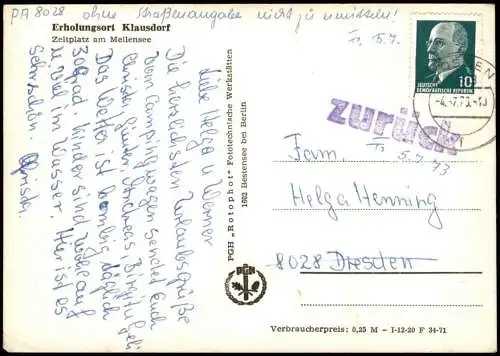 PA 8028 ohne Straßenangabe nicht zu ermitteln!
T3 5.7.
Erholungsort Klausdorf
Zeltplatz am Mellensee
Liebe Helga u Werner
Die herzlichsten Urlaubsgrüße
vom Campingwagen sendet Euch
Christa, Günter, Andreas, Birgit
Das Wetter ist bombig, täglich
30 Grad. Kinder sind
viel im Wasser. Hier ist es
schön.
Christa
PGH „Rotophot“ Fototechnische Werkstätten
1602 Bestensee bei Berlin
PGH
10
DEUTSCHE
DEMOKRATISCHE REPUBLIK
zurück
T3 5.7.73
Fam.
Helga Henning
8028 Dresden
Verbraucherpreis: 0,25 M – I-12-20 F 34-71